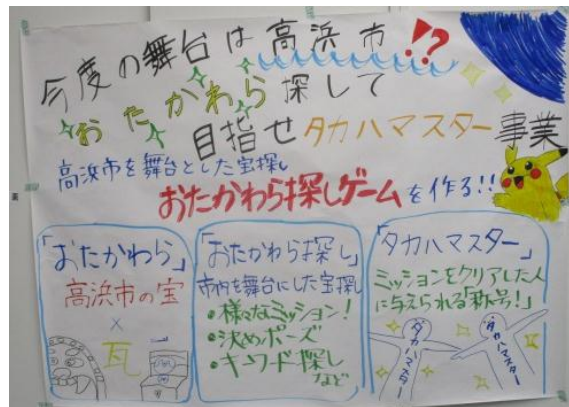 今度の舞台は高浜市!?
おたかわら探して
目指せタカハマスター事業
高浜市を舞台とした宝探し
おたかわら探しゲームを作る!!
「おたかわら」
高浜市の宝
×
瓦
「おたかわら探し」
市内を舞台にした宝探し
•様々なミッション!
•決めポーズ
•キーワード探し
など
「タカハマスター」
ミッションをクリアした人
に与えられる「称号!」
タカハマスター
タカハマスター